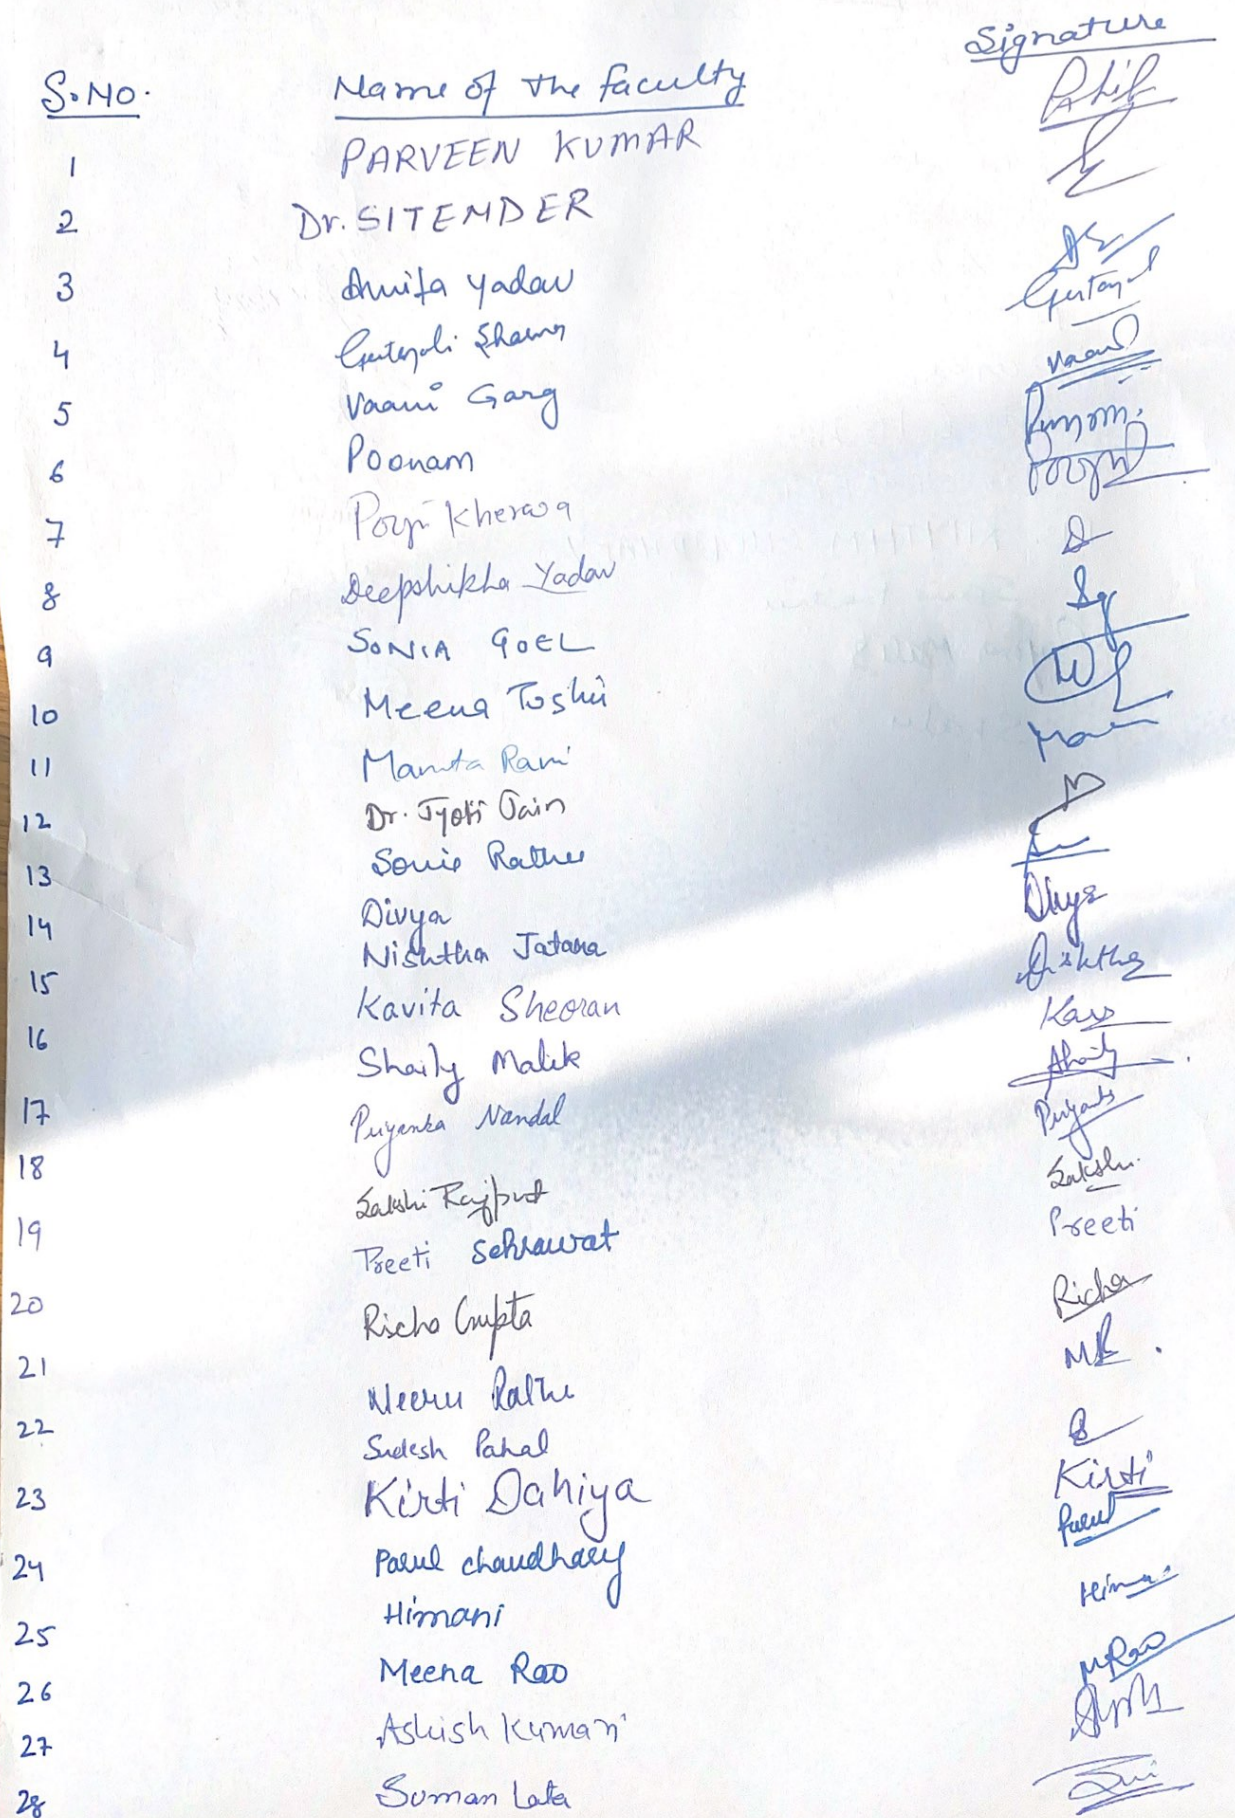 Signature
S.NO. Name of the faculty
1 PARVEEN KUMAR
2 Dr. SITENDER
3 Anita Yadav
4 Geetanjali Sharma
5 Vaani Garg Vaani
6 Poonam Poonam
7 Pooja Kherwa Pooja
8 Deepshikha Yadav
9 SONIA GOEL
10 Meena Toshir
11 Mamta Rani
12 Dr. Jyoti Jain
13 Sonia Rathee
14 Divya Divya
15 Nishtha Jatana Nishtha
16 Kavita Sheoran
17 Shaily Malik Shaily
18 Priyanka Nandal Priyanka
19 Sakshi Rajput Sakshi
20 Preeti Sehrawat Preeti
21 Richa Gupta Richa
22 Neeru Rathi
23 Sudesh Pahal
24 Kirti Dahiya Kirti
25 Parul chaudhary Parul
26 Himani
27 Meena Rao MRao
28 Ashish Kumari
Suman Lata